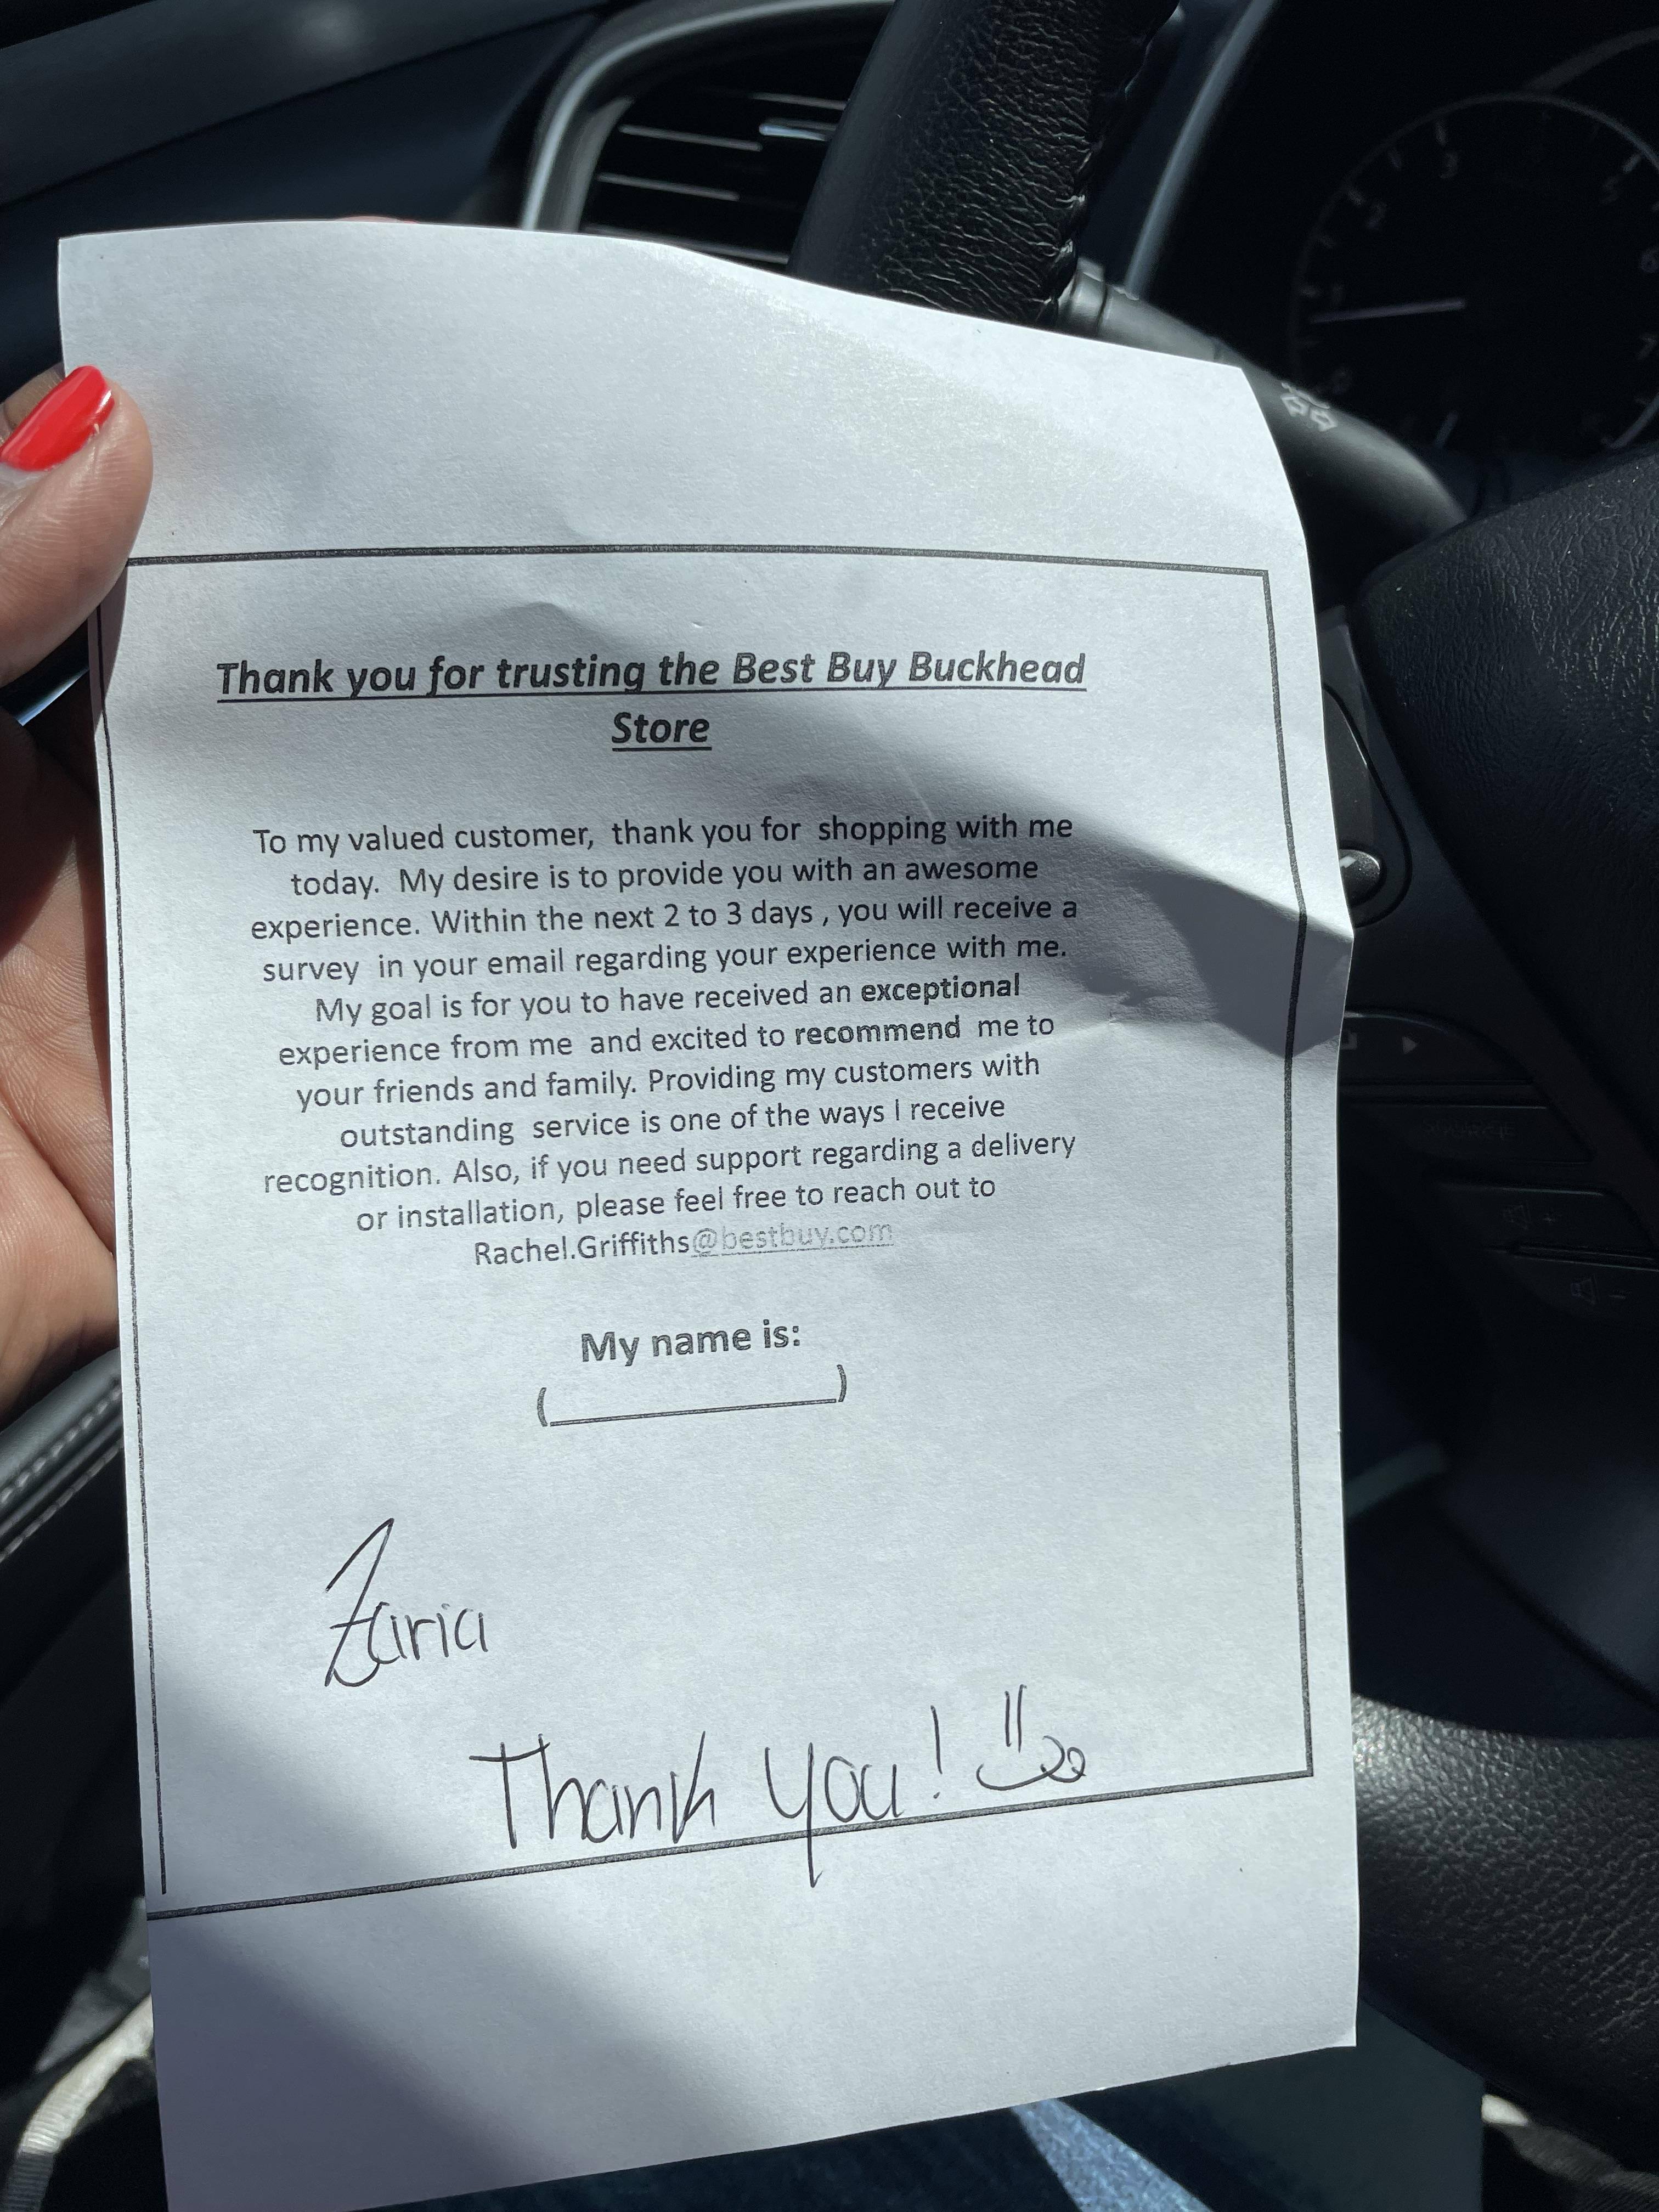 Thank you for trusting the Best Buy Buckhead
Store
To my valued customer, thank you for shopping with me
today. My desire is to provide you with an awesome
experience. Within the next 2 to 3 days , you will receive a
survey in your email regarding your experience with me.
My goal is for you to have received an exceptional
experience from me and excited to recommend me to
your friends and family. Providing my customers with
outstanding service is one of the ways I receive
recognition. Also, if you need support regarding a delivery
or installation, please feel free to reach out to
Rachel.Griffiths@bestbuy.com
My name is:
(____________)
Zaria
Thank you!